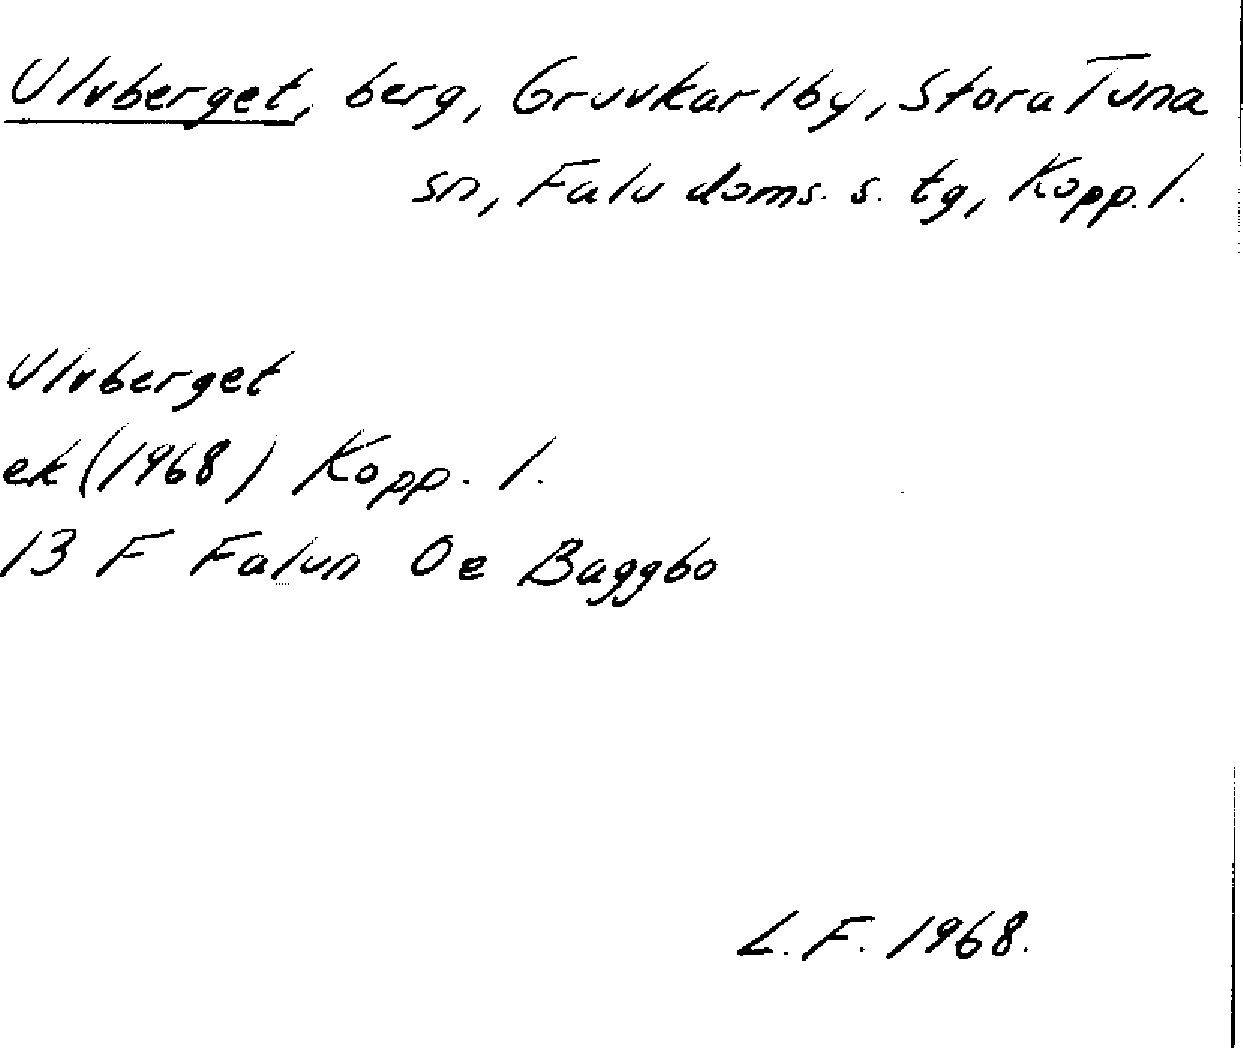 Ulvberget, berg, Gruvkarlby, Stora Tuna
sn, Falu doms. s. tg, Kopp. l.
Ulvberget
ek (1968) Kopp. l.
13 F Falun 0e Baggbo
L. F. 1968.